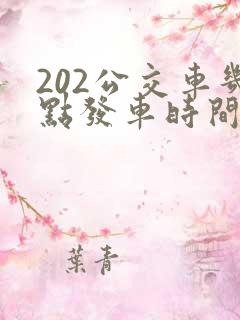 202公交車幾
點發車時間
葉青